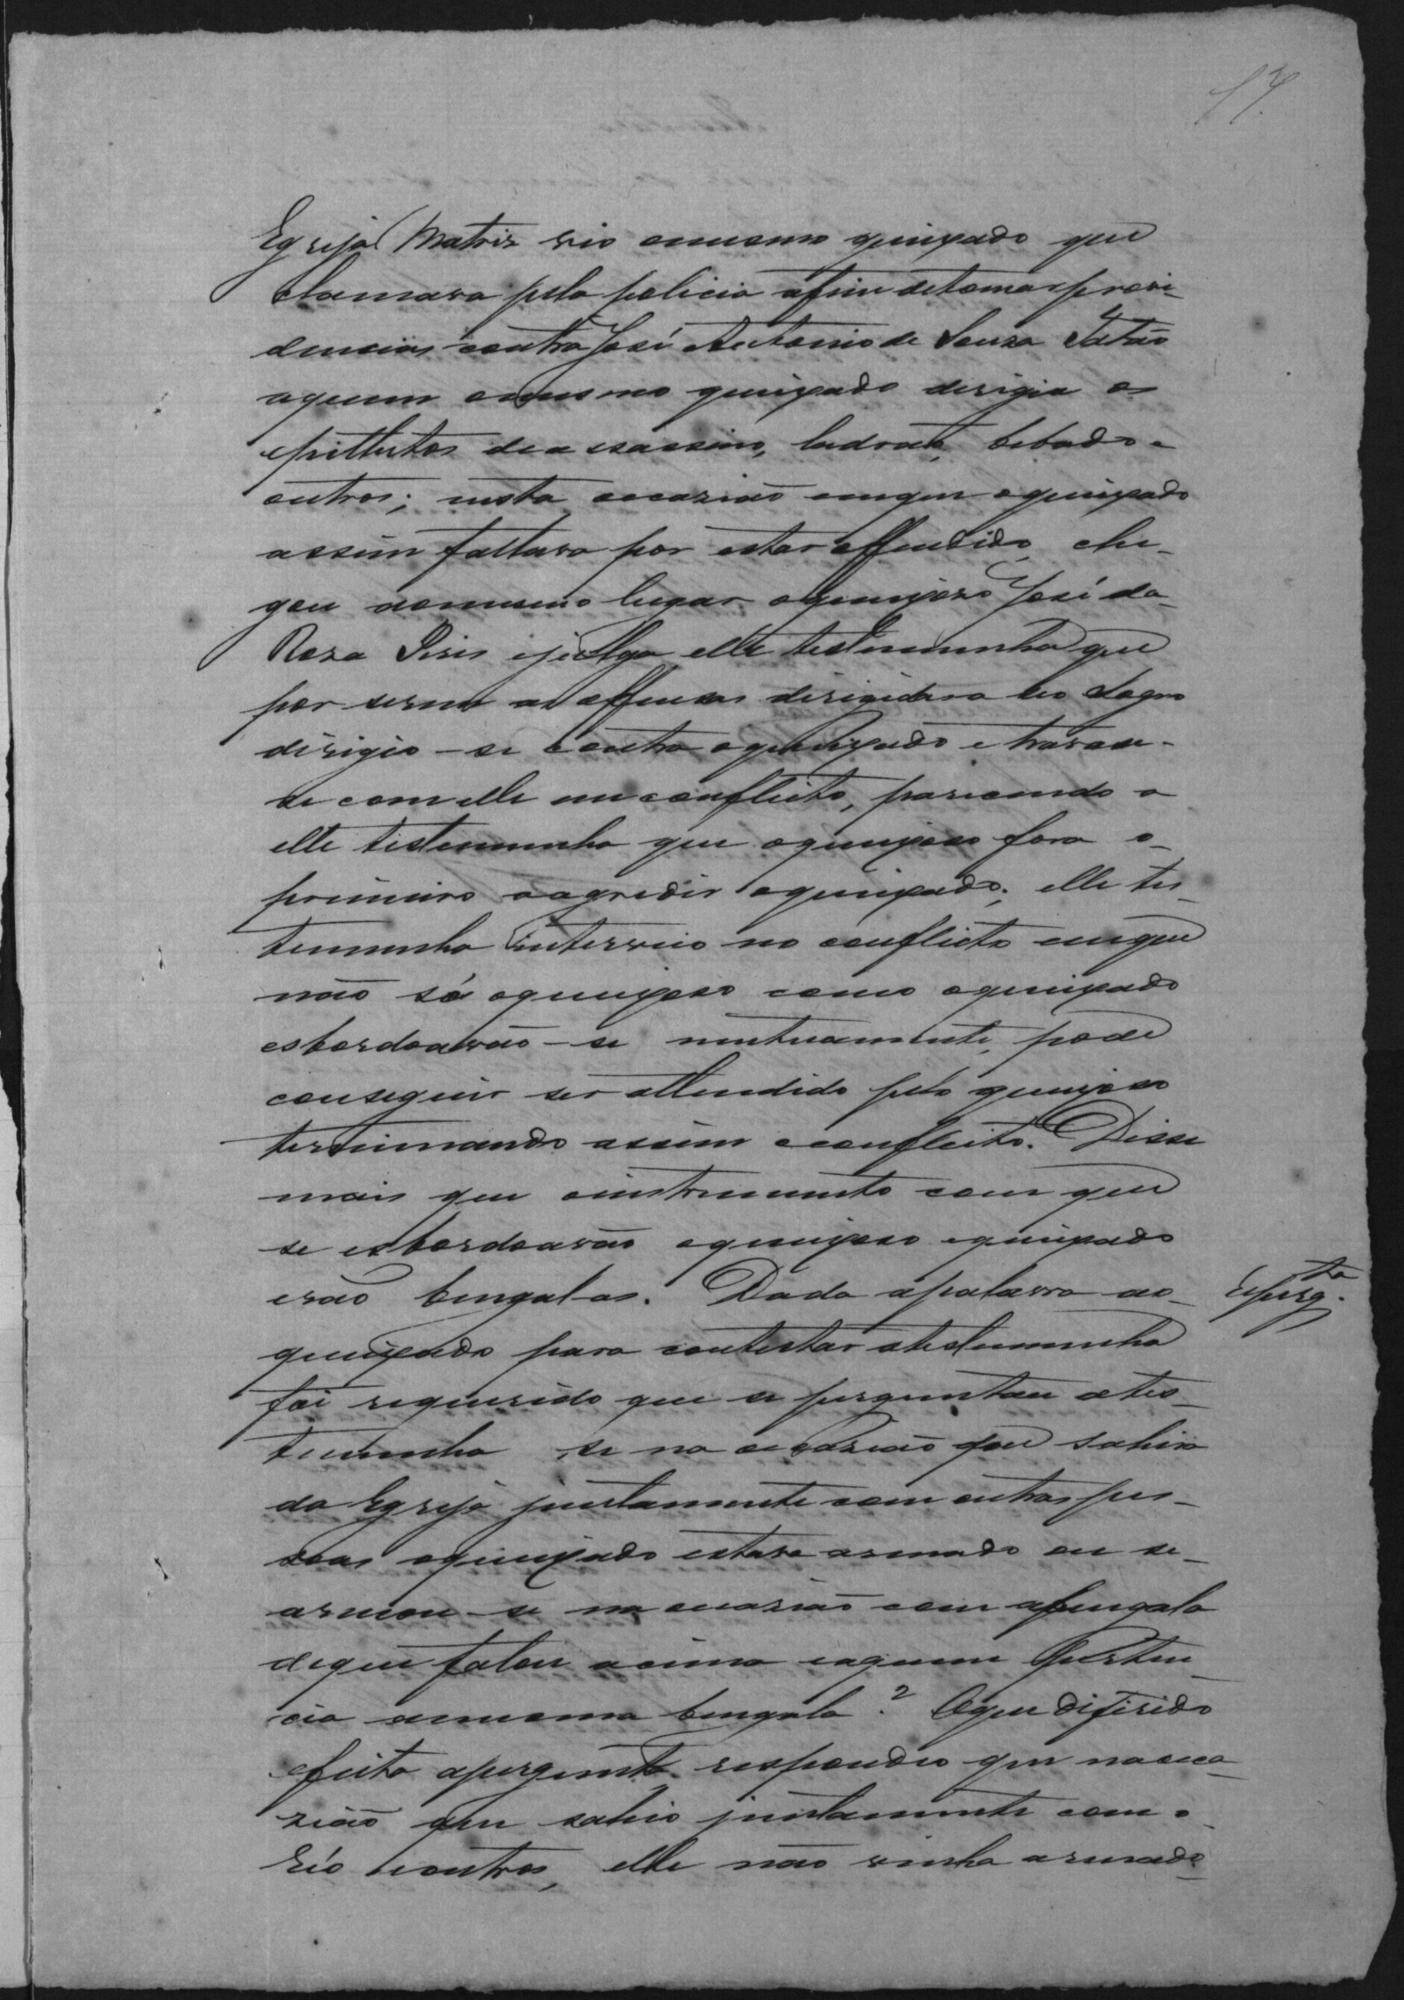 17
Egreja Matriz vio omesmo queixado que
clamava pela policia afim detomar provi-
dencias contra José Antonio de Souza
aquem omesmo queixado derigia os
epithetos de assassino, ladrão, bebado e
outros; nesta occazião emque oqueixado
assim fallava por estar offendido, che-
gou aomesmo lugar oqueixozo José da
Roza Pires ejulga elle testemunha que
por serem as offensas dirigidas a seo Sogro
dirigio-se contra oqueixado etravou-
se com elle um conflicto, parecendo a
elle testemunha que oqueixozo fora o
primeiro aagredir oqueixado; elle tes-
temunha interveio no conflicto emque
não só oqueixozo como oqueixado
esbordoarão-se mutuamente, pode
conseguir ser attendido pelo queixozo
terminando assim oconflicto. Disse
mais que oinstrumento com que
se esbordoarão oqueixozo equeixado
erão bengalas. Dada apalavra ao
queixado para contestar atestemunha
foi requerido que se perguntou ates-
temunha se na occazião que sahira
da Egreja juntamente com outras pes-
soas oqueixado estava armado ou se
armou-se na occazião com abengala
deque falou acima eaquem perten-
cia amesma bengala? Oque diferido
efeita apergunta respondeo que naocca-
zião que sahio juntamente com o
Réo eoutros, elle não vinha armado